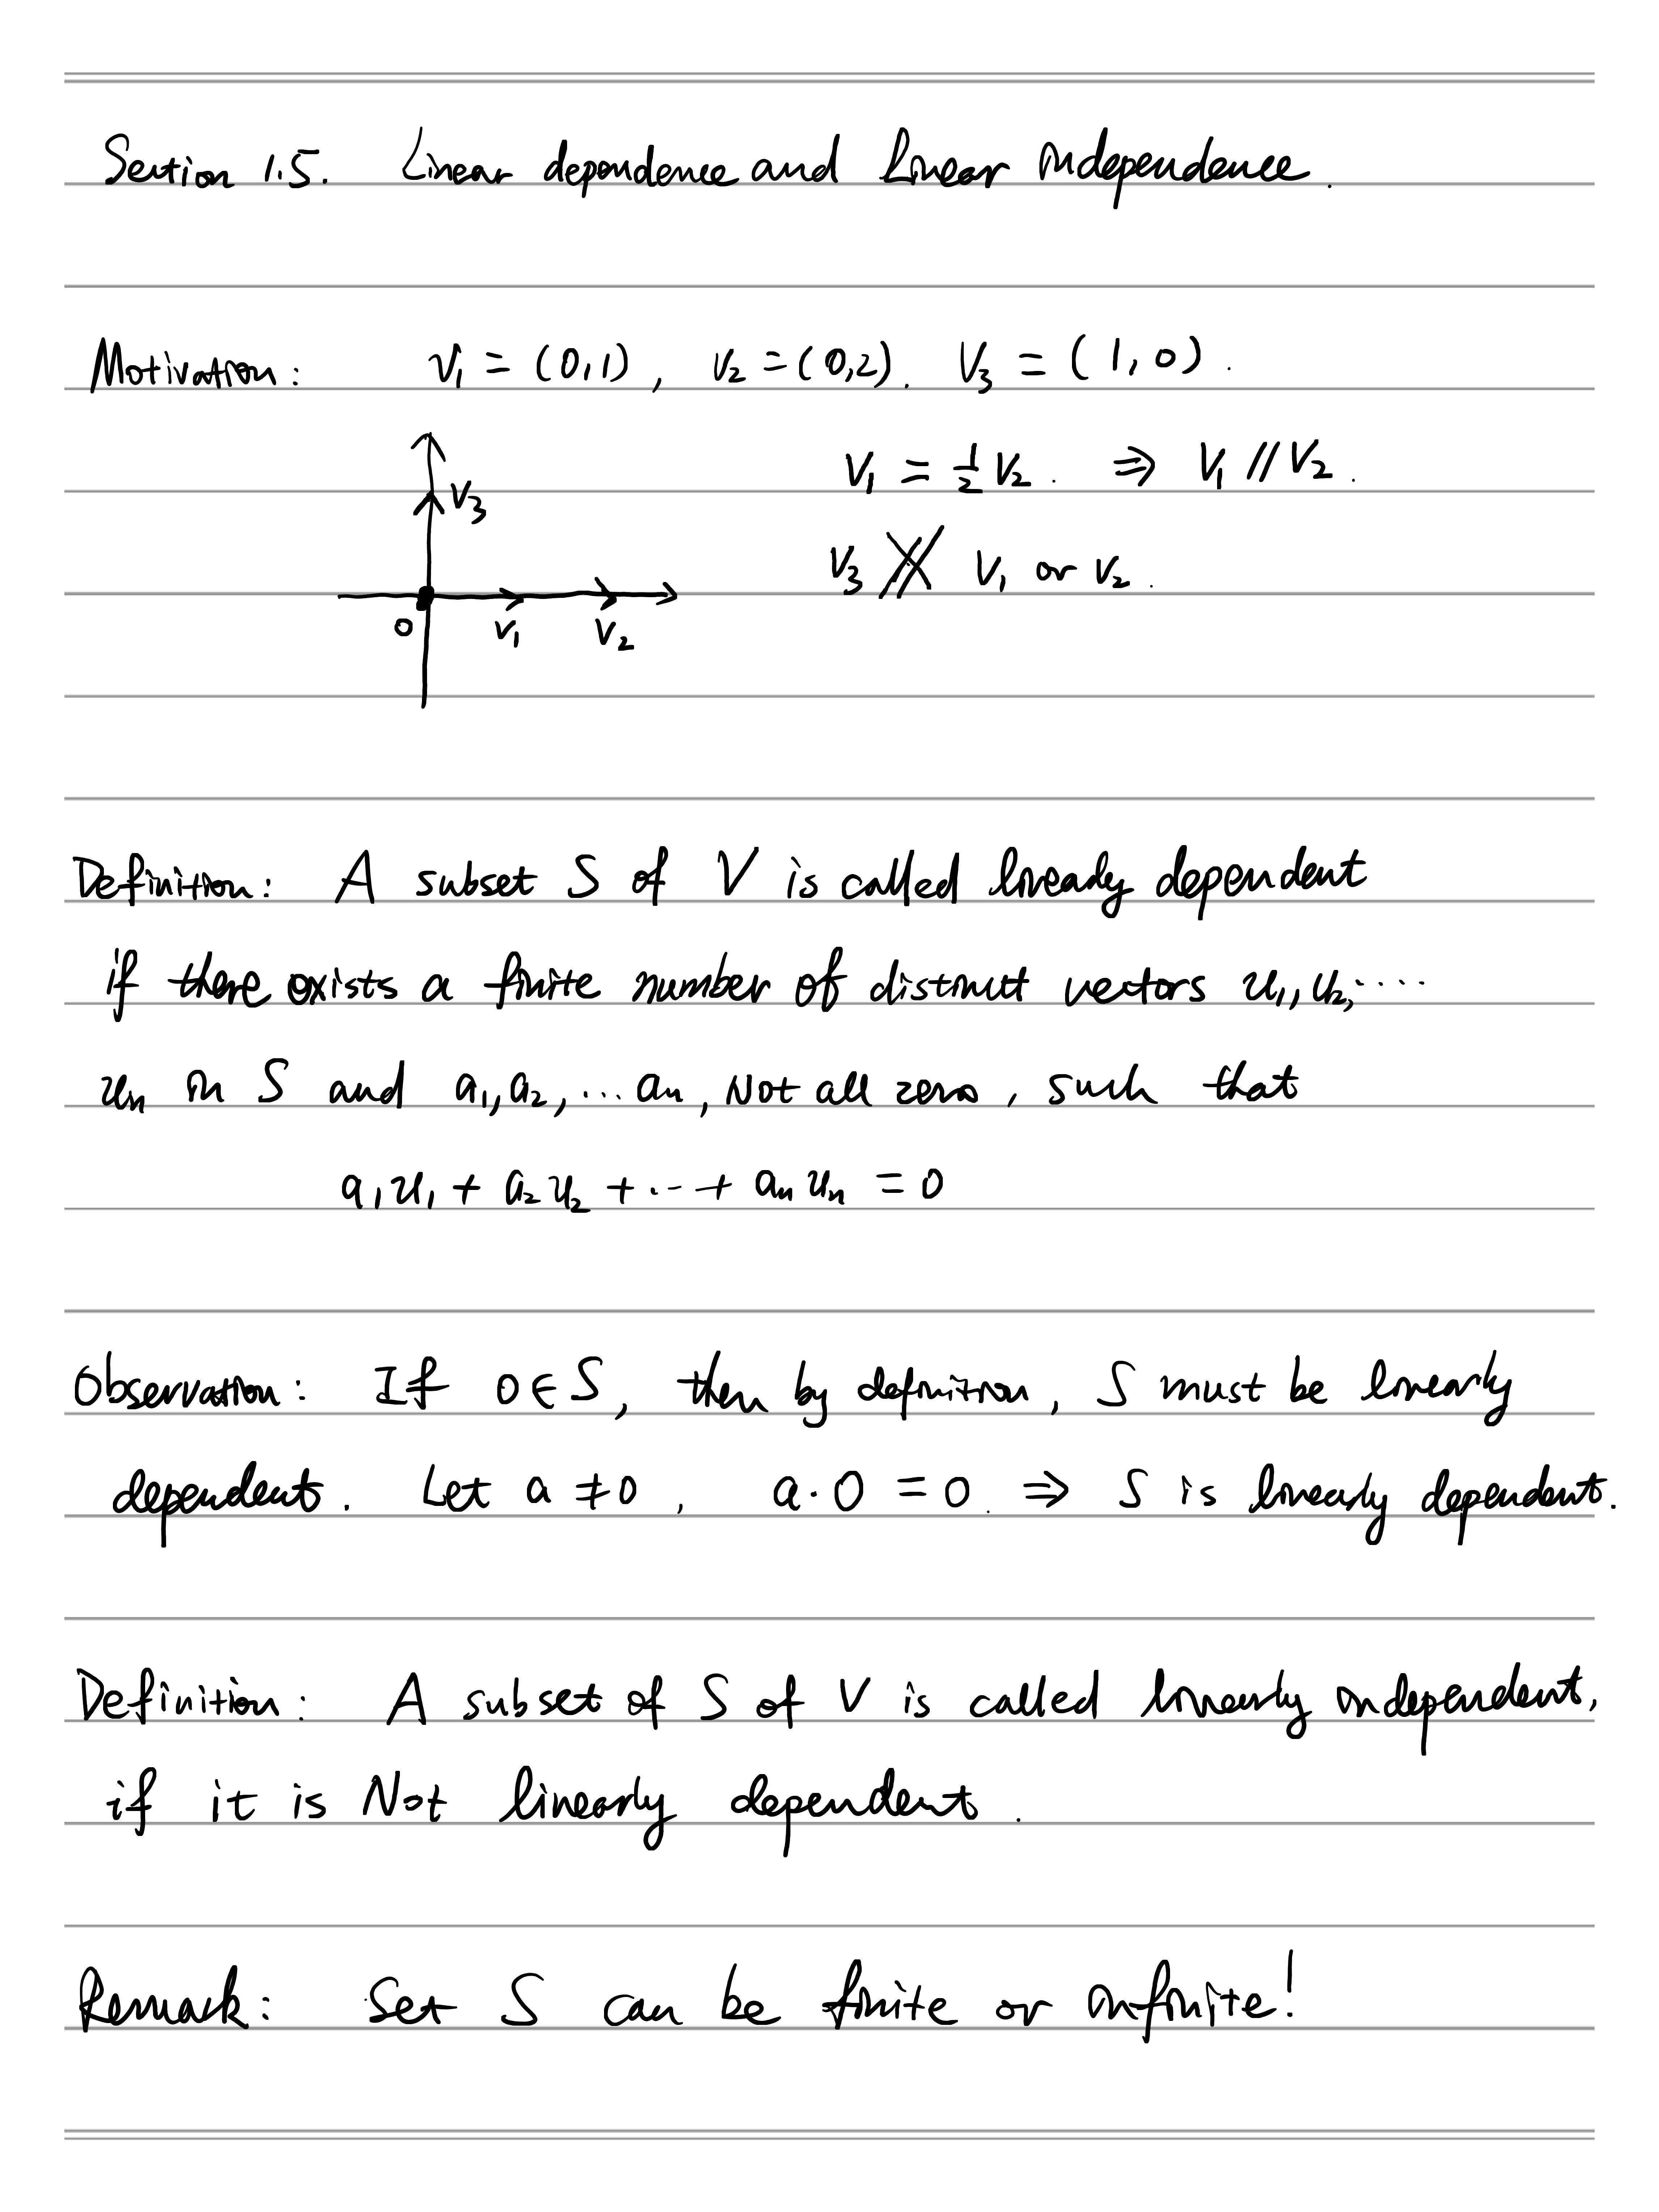 Section 1.5. Linear dependence and linear independence.
Motivation: v₁ = (0,1), v₂ = (0,2). v₃ = (1,0).
v₁ = ½ v₂. ⇒ v₁ // v₂.
v₃
v₃ ∦ v₁ or v₂.
0 v₁ v₂
Definition: A subset S of V is called linearly dependent
if there exists a finite number of distinct vectors u₁, u₂, ····
uₙ in S and a₁, a₂, ... aₙ, Not all zeros, such that
a₁u₁ + a₂u₂ + ··· + aₙuₙ = 0
Observation: If 0 ∈ S, then by definition, S must be linearly
dependent. Let a ≠ 0, a · 0 = 0. ⇒ S is linearly dependent.
Definition: A subset of S of V is called linearly independent,
if it is Not linearly dependent.
Remark: Set S can be finite or infinite!